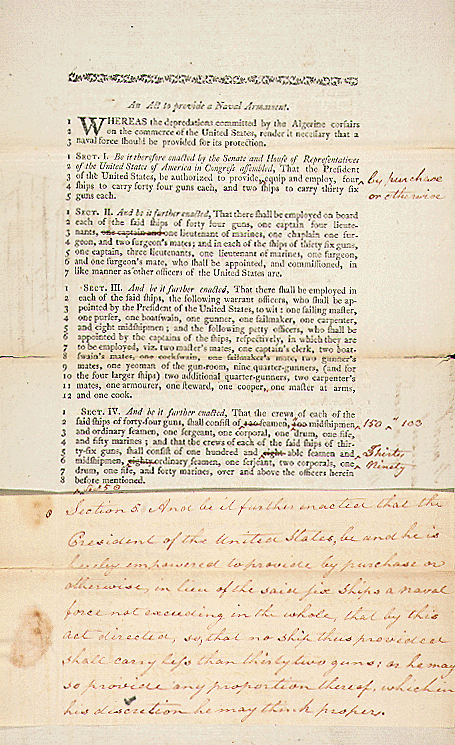 An Act to provide a Naval Armament.
1 WHEREAS the depredations committed by the Algerine corsairs
2 on the commerce of the United States, render it necessary that a
3 naval force should be provided for its protection.
1 SECT. I. Be it therefore enacted by the Senate and House of Representatives
2 of the United States of America in Congress assembled, That the President
3 of the United States, be authorized to provide, equip and employ, four by purchase
4 ships to carry forty four guns each, and two ships to carry thirty six or otherwise
5 guns each.
1 SECT. II. And be it further enacted, That there shall be employed on board
2 each of the said ships of forty four guns, one captain four lieute-
3 nants, one captain and one lieutenant of marines, one chaplain one sur-
4 geon, and two surgeon's mates; and in each of the ships of thirty six guns,
5 one captain, three lieutenants, one lieutenant of marines, one surgeon,
6 and one surgeon's mate, who shall be appointed, and commissioned, in
7 like manner as other officers of the United States are.
1 SECT. III. And be it further enacted, That there shall be employed in
2 each of the said ships, the following warrant officers, who shall be ap-
3 pointed by the President of the United States, to wit: one sailing master,
4 one purser, one boatswain, one gunner, one sailmaker, one carpenter,
5 and eight midshipmen; and the following petty officers, who shall be
6 appointed by the captains of the ships, respectively, in which they are
7 to be employed, viz. two master's mates, one captain's clerk, two boat-
8 swain's mates, one cockswain, one sailmaker's mate, two gunner's
9 mates, one yeoman of the gun-room, nine quarter-gunners, (and for
10 the four larger ships) two additional quarter-gunners, two carpenter's
11 mates, one armourer, one steward, one cooper, one master at arms,
12 and one cook.
1 SECT. IV. And be it further enacted, That the crews of each of the
2 said ships of forty-four guns, shall consist of seamen, midshipmen 150 " 103
3 and ordinary seamen, one sergeant, one corporal, one drum, one fife,
4 and fifty marines; and that the crews of each of the said ships of thir-
5 ty-six guns, shall consist of one hundred and eight able seamen and Thirty
6 midshipmen, eighty ordinary seamen, one serjeant, two corporals, one Ninety
7 drum, one fife, and forty marines, over and above the officers herein
8 before mentioned.
Section 5. And be it further enacted that the
President of the United States, be and he is
hereby empowered to provide by purchase or
otherwise, in lieu of the said six Ships a naval
force not exceeding in the whole, that by this
act directed, so, that no ship thus provided
shall carry less than thirty two guns; or he may
so provide any proportion thereof, which in
his discretion he may think proper.